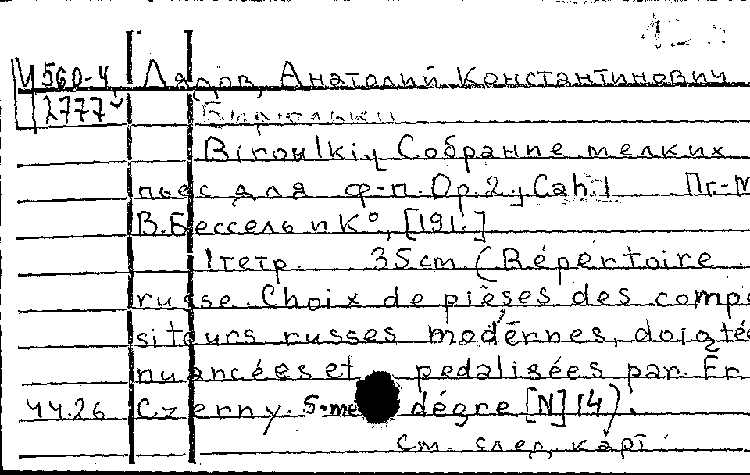 И 560-4 Лядов, Анатолий Константинович
2777 Бирюльки
Biroulkiy Собрание мелких
пьес для ф-п. Op.2, Cah.1 Пг-М
В.Бессель и К°, [191.]
1 тетр. 35 cm (Répertoire
russe. Choix de pièses des compo
siteurs russes modernes, doigté
nuancées et pedalisées par Fr
44.26 Czerny. 5-me dégre [N] 14).
см. след. карт.